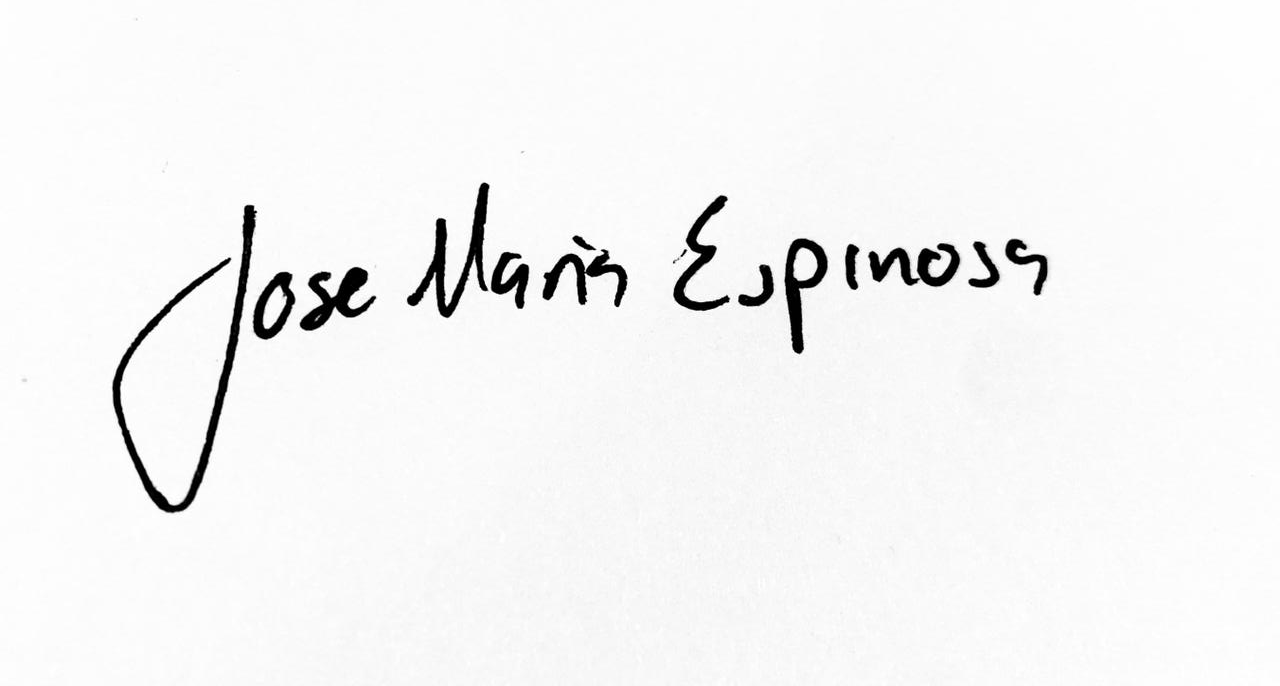 Jose Maria Espinosa